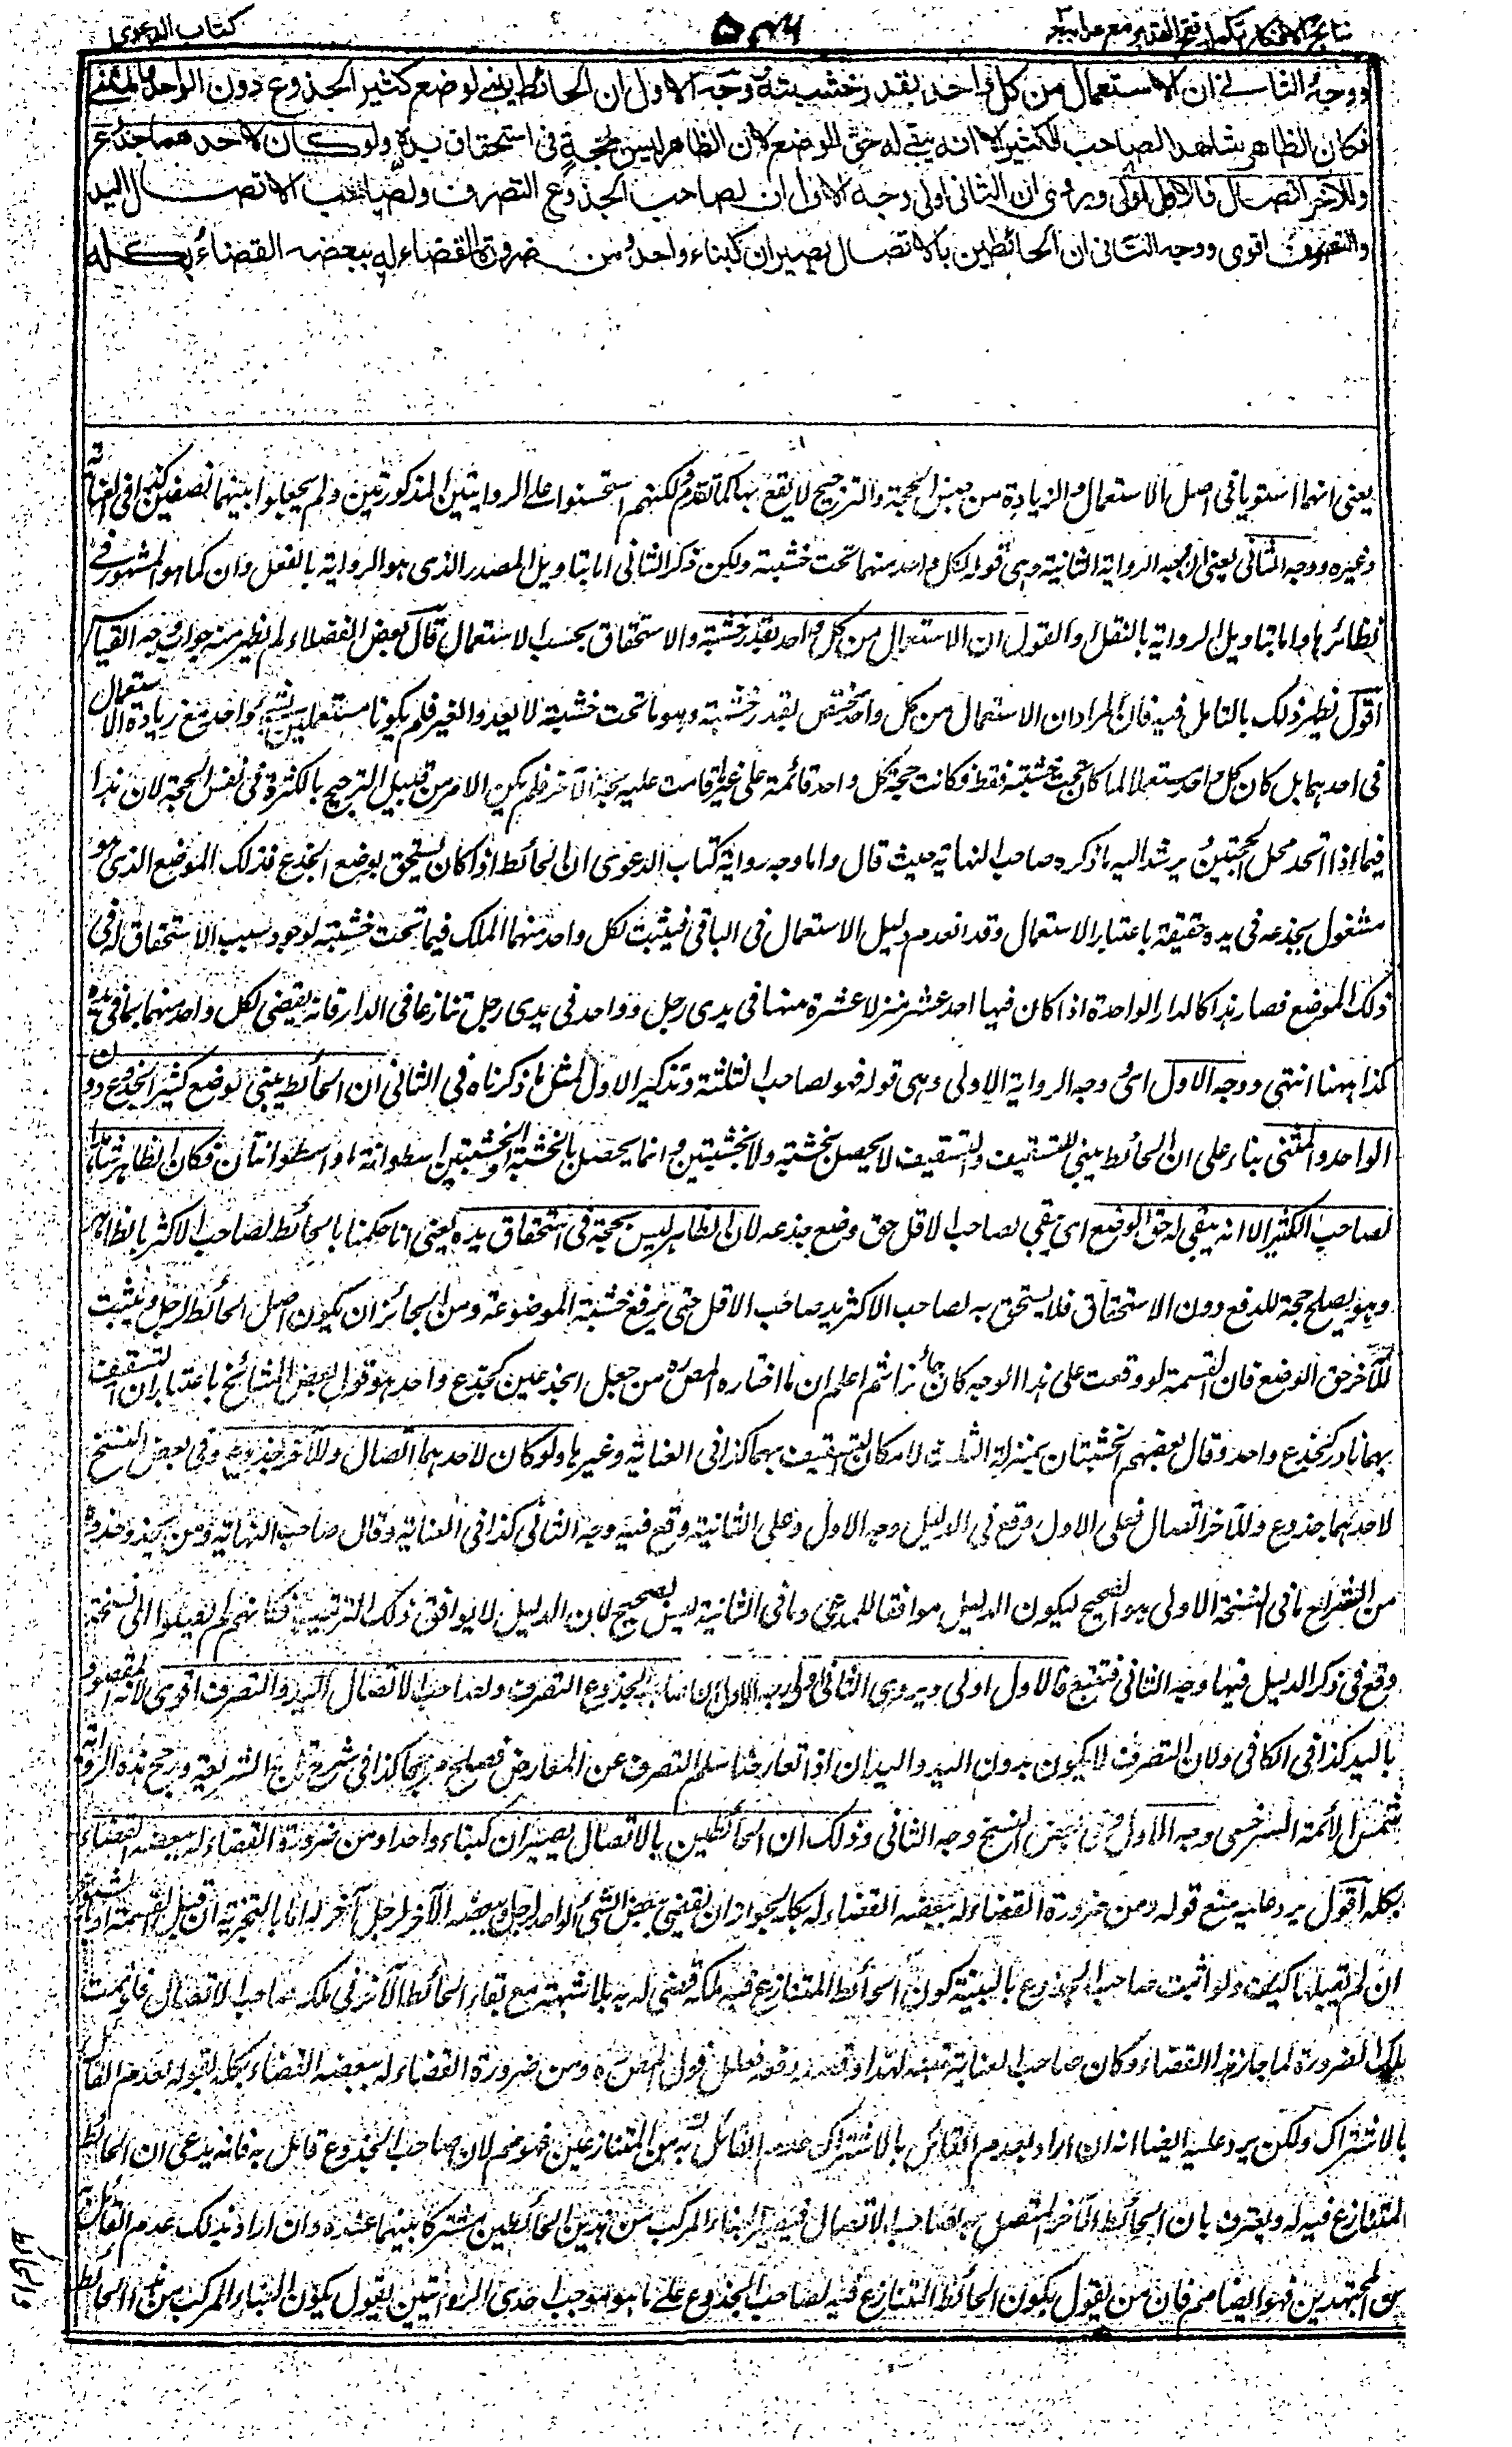 نتائج الافكار تكملة فتح القدير مع هدايه
كتاب الدعوى
ووجه الثانى ان الاستعمال من كل واحد بقدر خشبته ووجه الاول ان الحائط يبنى لوضع كثير الجذوع دون الواحد والمثنى
فكان الظاهر شاهدا لصاحب الكثير الا انه يبقى له حق الوضع لان الظاهر ليس بحجة فى استحقاق يده ولو كان لاحدهما جذوع
وللآخر اتصال فالاول اولى ويروى ان الثانى اولى وجه الاول ان لصاحب الجذوع التصرف ولصاحب الاتصال اليد
والتصرف اقوى ووجه الثانى ان الحائطين بالاتصال يصيران كبناء واحد ومن ضرورة القضاء له ببعضه القضاء بكله
يعنى انهما استويا فى اصل الاستعمال والزيادة من جنس الحجة والترجيح لا يقع بها كما تقدم ولكنهم استحسنوا على الروايتين المذكورتين ولم يجعلوا بينهما نصفين كذا فى العناية
وغيره ووجه الثانى يعنى ان وجه الرواية الثانية وهى قوله لكل واحد منهما تحت خشبته ولكن ذكر الثانى اما بتاويل المصدر الذى هو الرواية بالفعل وان كما هو المشهور فى
نظائرها واما بتاويل الرواية بالنقل والقول ان الاستعمال من كل واحد بقدر خشبته والاستحقاق بحسب الاستعمال قال بعض الفضلاء لم يظهر منه جواب وجه القياس
اقول يظهر ذلك بالتامل فيه فان المراد ان الاستعمال من كل واحد مختص بقدر خشبته وهو ما تحت خشبته لا يعدو الغير فلم يكونا مستعملين لشىء واحد مع زيادة الاستعمال
فى احدهما بل كان كل واحد مستعملا لما كان تحت خشبته فقط فكانت حجة كل واحد قائمة على غير ما قامت عليه حجة الآخر فلم يكن الامر من قبيل الترجيح بالكثرة فى نفس الحجة لان هذا
فيما اذا اتحد محل الحجتين يرشد اليه ما ذكره صاحب النهاية حيث قال واما وجه رواية كتاب الدعوى ان الحائط اذا كان يستحق بوضع الجذع فذلك الموضع الذى هو
مشغول بجذعه فى يده حقيقة باعتبار الاستعمال وقد انعدم دليل الاستعمال فى الباقى فيثبت لكل واحد منهما الملك فيما تحت خشبته لوجود سبب الاستحقاق له فى
ذلك الموضع فصار هذا كالدار الواحدة اذا كان فيها احد عشر منزلا عشرة منها فى يدى رجل وواحد فى يدى رجل تنازعا فى الدار فانه يقضى لكل واحد منهما بما فى يده
كذا ههنا انتهى ووجه الاول اى وجه الرواية الاولى وهى قوله فهو لصاحب الثلثة وتذكير الاول لمثل ما ذكرناه فى الثانى ان الحائط يبنى لوضع كثير الجذوع دون
الواحد والمثنى بناء على ان الحائط يبنى للتسقيف والتسقيف لا يحصل بخشبة ولا بخشبتين وانما يحصل بالخشبة او الخشبتين اسطوانة او اسطوانتان فكان الظاهر شاهدا
لصاحب الكثير الا انه يبقى له حق الوضع اى يبقى لصاحب الاقل حق وضع جذعه لان الظاهر ليس بحجة فى استحقاق يده يعنى انا حكمنا بالحائط لصاحب الاكثر بالظاهر
وهو يصلح حجة للدفع دون الاستحقاق فلا يستحق به لصاحب الاكثر يد صاحب الاقل حتى يرفع خشبته الموضوعة ومن الجائز ان يكون اصل الحائط لرجل ويثبت
للآخر حق الوضع فان القسمة لو وقعت على هذا الوجه كان جائزا ثم اعلم ان ما اختاره المصره من جعل الجذعين كجذع واحد هو قول بعض المشائخ باعتبار ان التسقيف
بهما نادر كجذع واحد وقال بعضهم الخشبتان بمنزلة الثلاث لامكان التسقيف بهما كذا فى العناية وغيرها ولو كان لاحدهما اتصال وللآخر جذوع وفى بعض النسخ
لاحدهما جذوع وللآخر اتصال فعلى الاول وقع فى الدليل وجه الاول وعلى الثانية وقع فيه وجه الثانى كذا فى العناية وقال صاحب النهاية ومن يحذو حذوه
من الشراح ما فى النسخة الاولى هو الصحيح ليكون الدليل موافقا للمدعى وما فى الثانية ليس بصحيح لان الدليل لا يوافق ذلك الترتيب فكانهم لم يصلوا الى نسخة
وقع فى ذكر الدليل فيها وجه الثانى فتتبع فالاول اولى ويروى الثانى اولى وجه الاول ان لصاحب الجذوع التصرف ولصاحب الاتصال اليد والتصرف اقوى لانه المقصود
باليد كذا فى الكافى ولان التصرف لا يكون بدون اليد واليدان اذا تعارضتا سلم التصرف عن المعارض فصلح مرجحا كذا فى شرح تاج الشريعة ورجح هذه الرواية
شمس الائمة السرخسى وجه الاول وفى بعض النسخ وجه الثانى وذلك ان الحائطين بالاتصال يصيران كبناء واحد ومن ضرورة القضاء له ببعضه القضاء
بكله اقول يرد عليه منع قوله ومن ضرورة القضاء له ببعضه القضاء له بكله لجواز ان يقضى ببعض الشىء الواحد لرجل وببعضه الآخر لرجل آخر له اما بالتجزية ان قبل القسمة او بالشيوع
ان لم يقبلها كيف ولو اثبت صاحب الجذوع بالبينة كون الحائط المتنازع فيه ملكه قضى له به بلا شبهة مع بقاء الحائط الآخر فى ملك صاحب الاتصال فلو تمت
تلك الضرورة لما جاز هذا القضاء وكان صاحب العناية تنبه لهذا وقصد دفعه فعلل قول المصره ومن ضرورة القضاء له ببعضه القضاء بكله بقوله لعدم القائل
بالاشتراك ولكن يرد عليه ايضا انه ان اراد بعدم القائل بالاشتراك عدم القائل به من المتنازعين فهو مم لان صاحب الجذوع قائل به فانه يدعى ان الحائط
المتنازع فيه له ويعترف بان الحائط الآخر المتصل به لصاحب الاتصال فيصير البناء المركب من هذين الحائطين مشتركا بينهما عنده وان اراد بذلك عدم القائل به
من المجتهدين فهو ايضا مم فان من يقول بكون الحائط المتنازع فيه لصاحب الجذوع على ما هو موجب احدى الروايتين يقول بكون البناء المركب من هذا الحائط